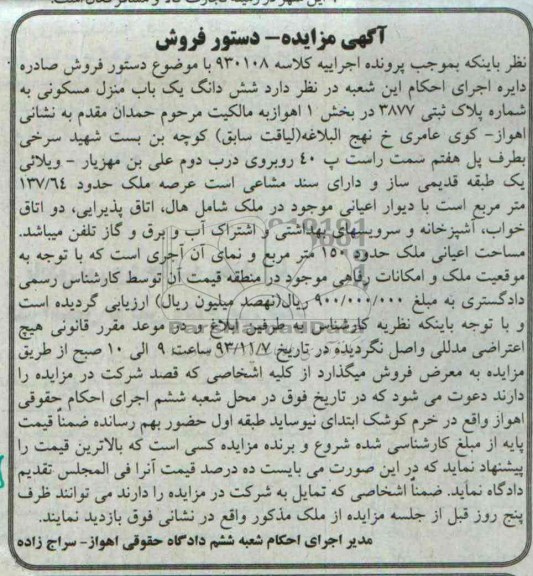 آگهی مزایده- دستور فروش
نظر باینکه بموجب پرونده اجراییه کلاسه ۹۳۰۱۰۸ با موضوع دستور فروش صادره
دایره اجرای احکام این شعبه در نظر دارد شش دانگ یک باب منزل مسکونی به
شماره پلاک ثبتی ۳۸۷۷ در بخش ۱ اهوازبه مالکیت مرحوم حمدان مقدم به نشانی
اهواز- کوی عامری خ نهج البلاغه(لیاقت سابق) کوچه بن بست شهید سرخی
بطرف پل هفتم سمت راست پ ۴۰ روبروی درب دوم علی بن مهزیار - ویلائی
یک طبقه قدیمی ساز و دارای سند مشاعی است عرصه ملک حدود ۱۳۷/۶۴
متر مربع است با دیوار اعیانی موجود در ملک شامل هال، اتاق پذیرایی، دو اتاق
خواب، آشپزخانه و سرویسهای بهداشتی و اشتراک آب و برق و گاز تلفن میباشد.
مساحت اعیانی ملک حدود ۱۵۰ متر مربع و نمای آن آجری است که با توجه به
موقعیت ملک و امکانات رفاهی موجود در منطقه قیمت آن توسط کارشناس رسمی
دادگستری به مبلغ ۹۰۰/۰۰۰/۰۰۰ ریال(نهصد میلیون ریال) ارزیابی گردیده است
و با توجه باینکه نظریه کارشناس به طرفین ابلاغ و در موعد مقرر قانونی هیچ
اعتراضی مدللی واصل نگردیده در تاریخ ۹۳/۱۱/۷ ساعت ۹ الی ۱۰ صبح از طریق
مزایده به معرض فروش میگذارد از کلیه اشخاصی که قصد شرکت در مزایده را
دارند دعوت می شود که در تاریخ فوق در محل شعبه ششم اجرای احکام حقوقی
اهواز واقع در خرم کوشک ابتدای نیوساید طبقه اول حضور بهم رسانده ضمناً قیمت
پایه از مبلغ کارشناسی شده شروع و برنده مزایده کسی است که بالاترین قیمت را
پیشنهاد نماید که در این صورت می بایست ده درصد قیمت آنرا فی المجلس تقدیم
دادگاه نماید. ضمناً اشخاصی که تمایل به شرکت در مزایده را دارند می توانند ظرف
پنج روز قبل از جلسه مزایده از ملک مذکور واقع در نشانی فوق بازدید نمایند.
مدیر اجرای احکام شعبه ششم دادگاه حقوقی اهواز- سراج زاده